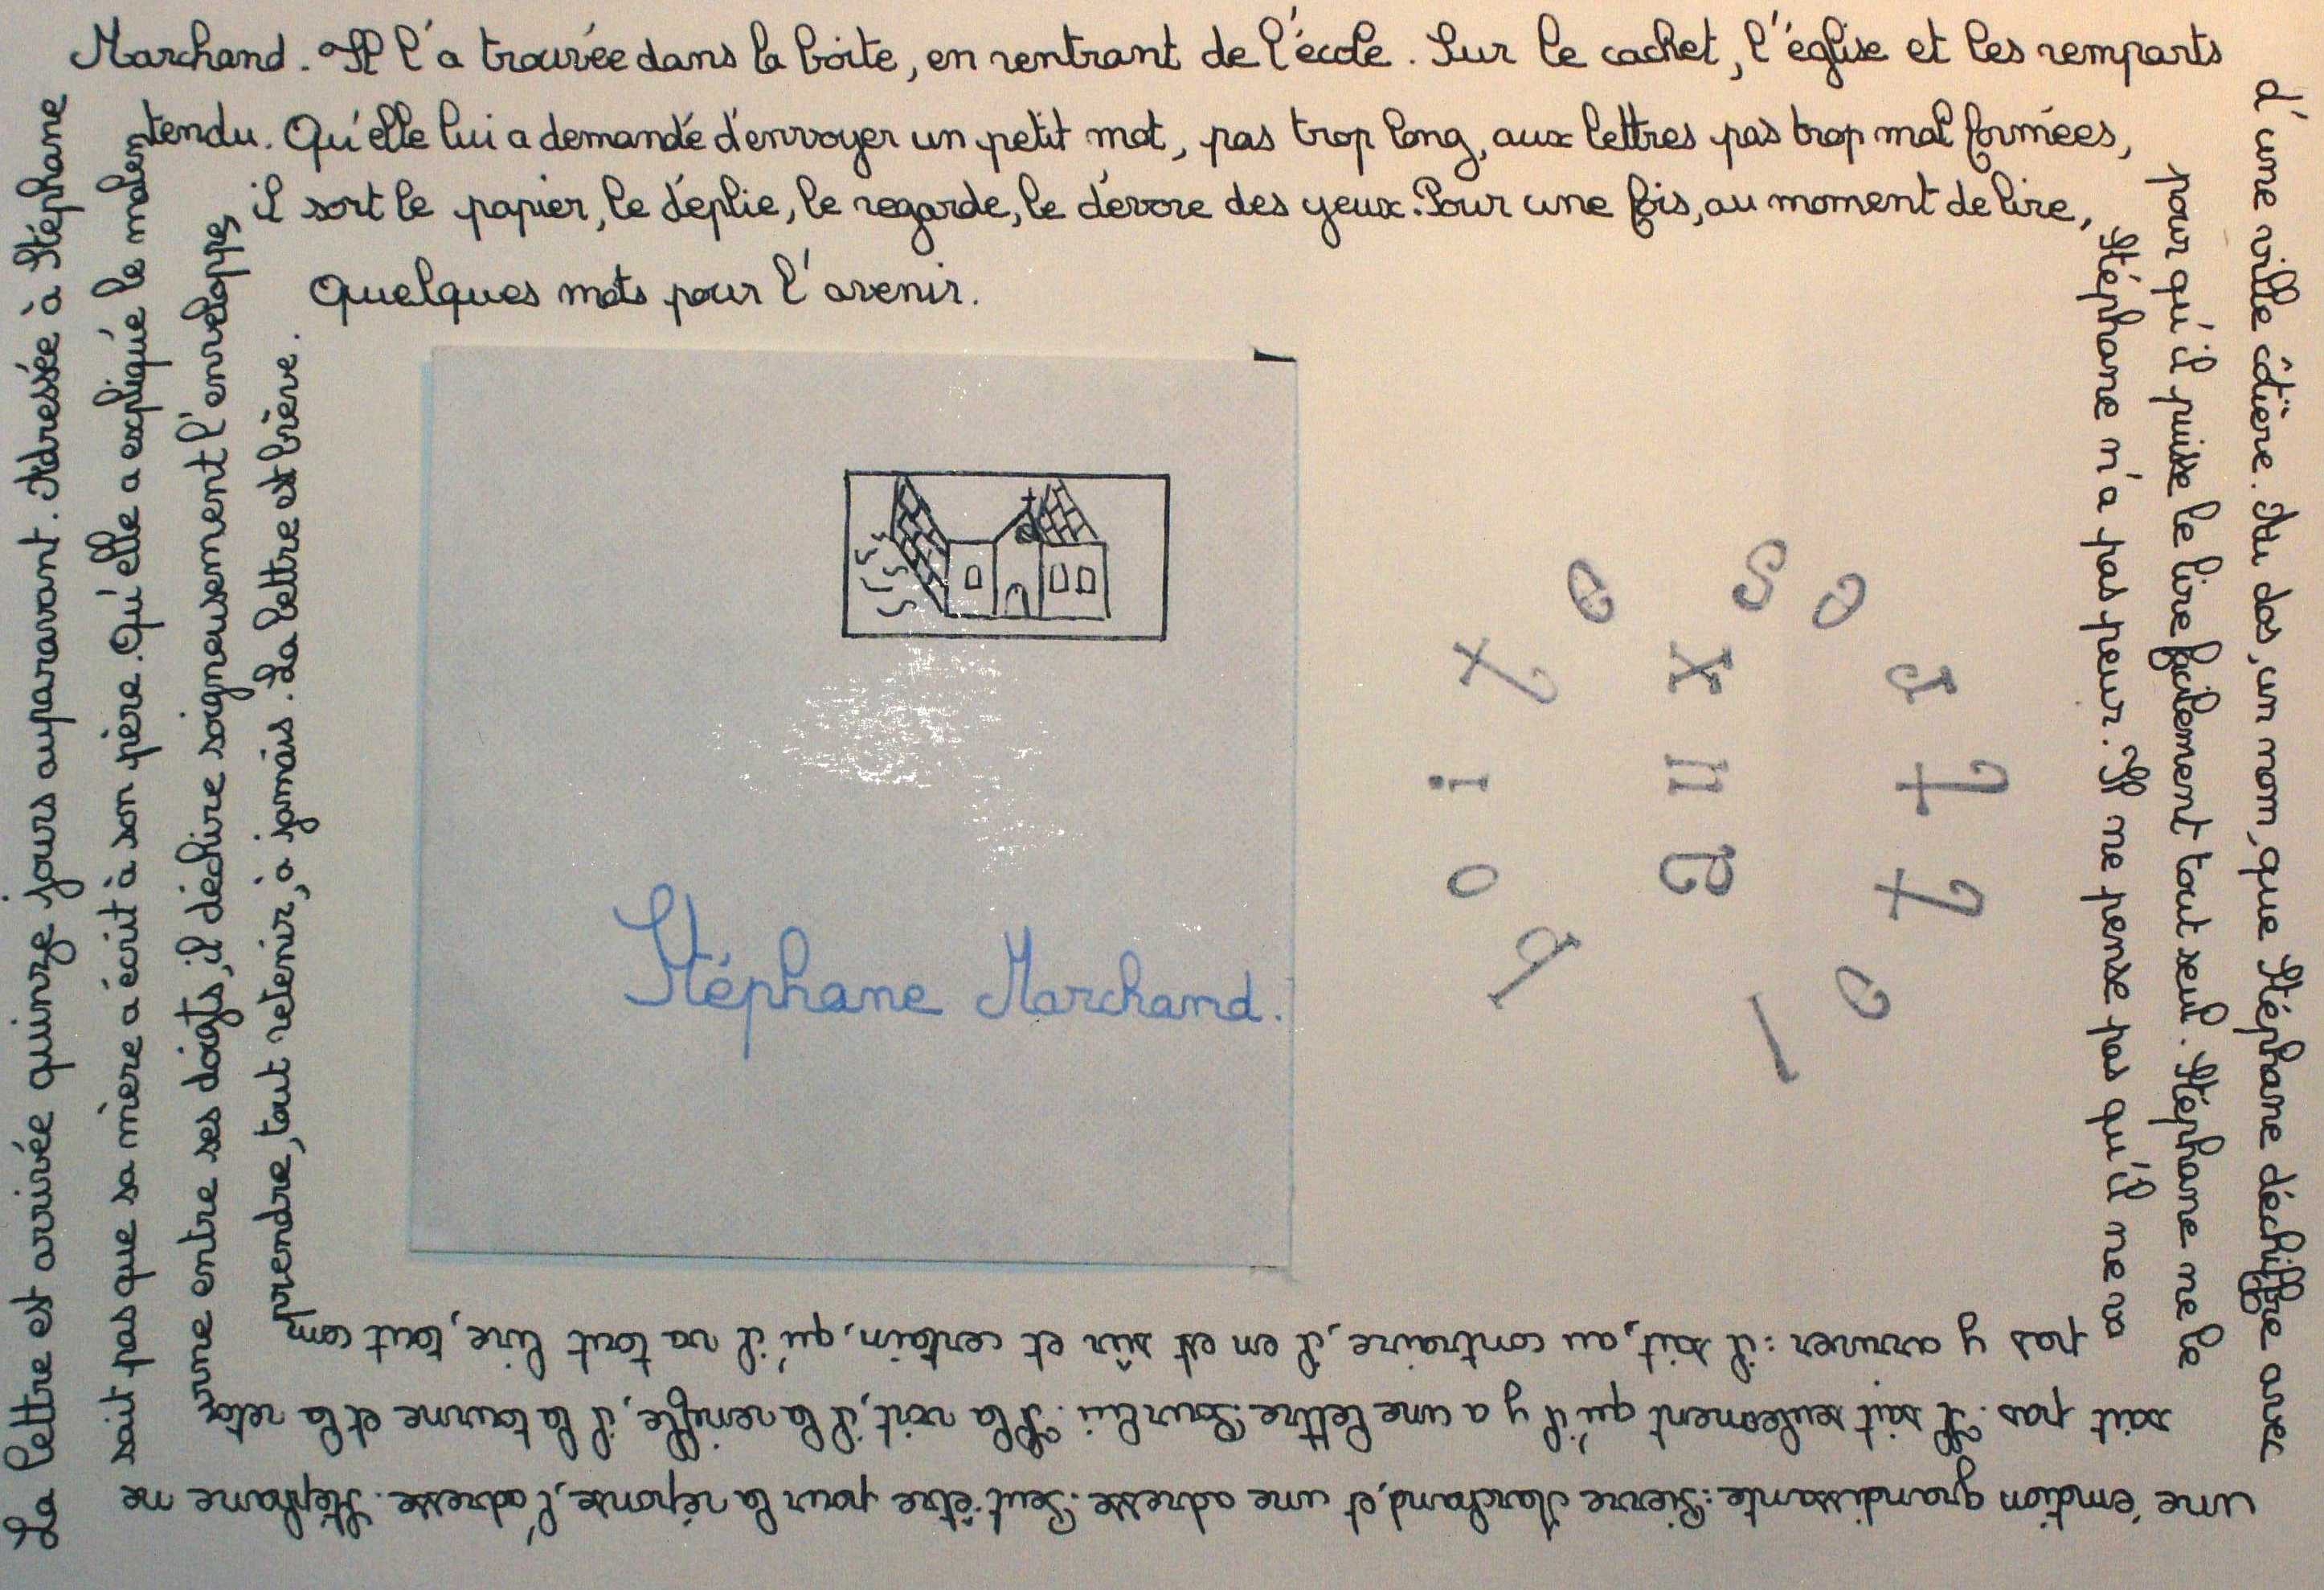 La lettre est arrivée quinze jours auparavant. Adressée à Stéphane
Marchand. Il l'a trouvée dans la boite, en rentrant de l'école. Sur le cachet, l'église et les remparts
d'une ville côtière. Au dos, un nom, que Stéphane déchiffre avec
une émotion grandissante : Pierre Marchand, et une adresse. Peut-être pour la réponse, l'adresse. Stéphane ne
sait pas que sa mère a écrit à son père. Qu'elle a expliqué le malen
tendu. Qu'elle lui a demandé d'envoyer un petit mot, pas trop long, aux lettres pas trop mal formées,
pour qu'il puisse le lire facilement tout seul. Stéphane ne le
sait pas. Il sait seulement qu'il y a une lettre. Pour lui. Il la voit, il la renifle, il la tourne et la retou
rne entre ses doigts, il déchire soigneusement l'enveloppe,
il sort le papier, le déplie, le regarde, le dévore des yeux. Pour une fois, au moment de lire,
Stéphane n'a pas peur. Il ne pense pas qu'il ne va
pas y arriver : il sait, au contraire, il en est sûr et certain, qu'il va tout lire, tout com
prendre, tout retenir, à jamais. La lettre est brève.
Quelques mots pour l'avenir.
Stéphane Marchand.
lettres
aux